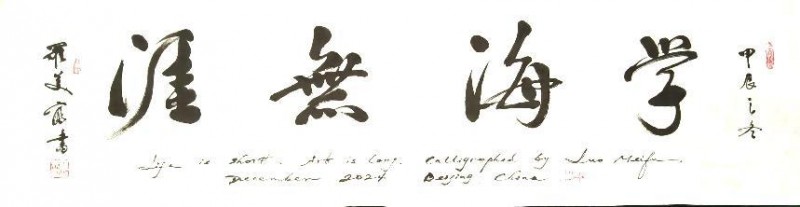 甲辰之冬
学海無涯
羅美富書
Life is short. Art is long. Calligraphed by Luo Meifu.
December 2024 Beijing China